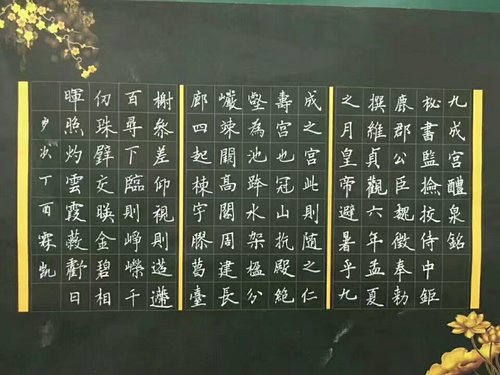 九成宮醴泉銘
秘書監撿挍侍中鉅
鹿郡公臣魏徵奉勑
撰維貞觀六年孟夏
之月皇帝避暑乎九
成之宮此則随之仁
壽宮也冠山抗殿絶
壑為池跨水架楹分
巖竦闕高閣周建長
廊四起棟宇膠葛臺
榭叅差仰視則迢遰
百尋下臨則崢嶸千
仞珠璧交暎金碧相
暉照灼雲霞蔽虧日
岁次丁酉霖凯